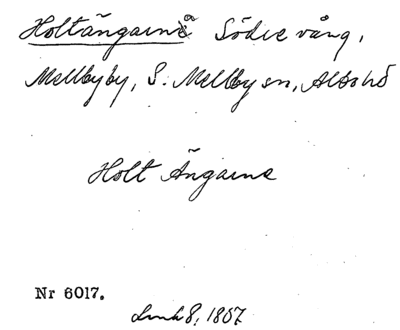 Holtängarnå Södre vång,
Mellbyby, S. Mellby sn, Albohd
Holt Ängarne
Nr 6017.
8, 1857.